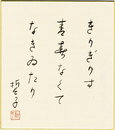 きりぎりす
青春なくて
なきゐたり
哲子